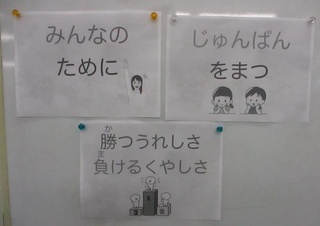 みんなの
ために
じゅんばん
をまつ
か
勝つうれしさ
ま
負けるくやしさ